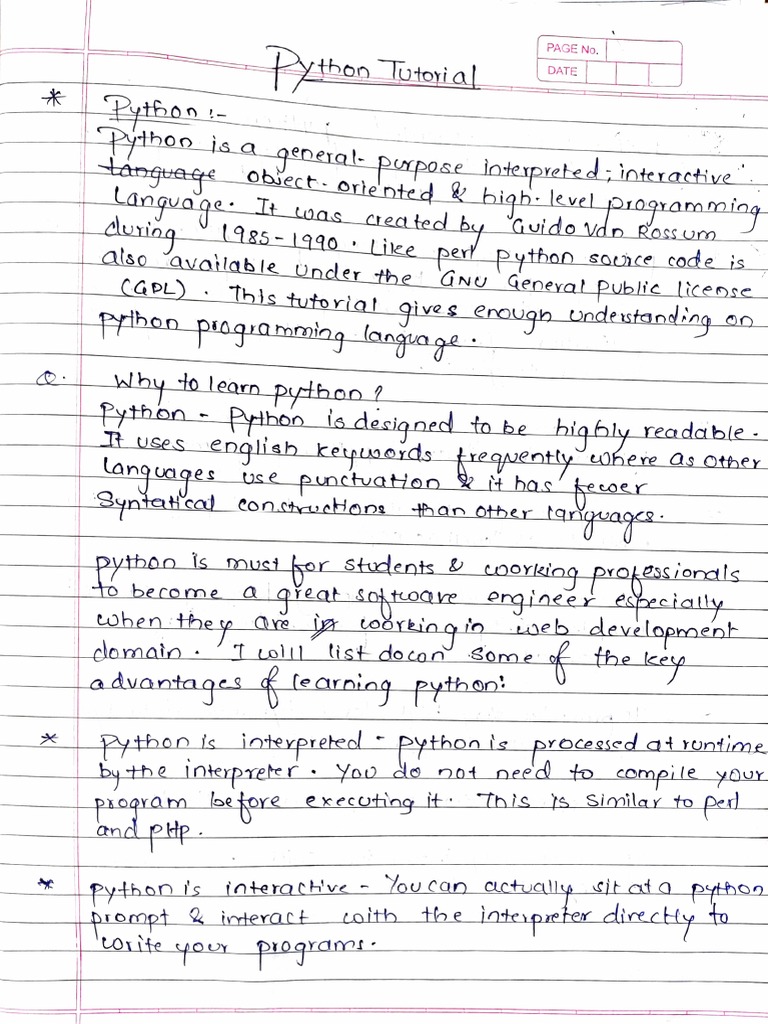 PAGE No.
DATE
Python Tutorial
* Python :-
Python is a general-purpose interpreted, interactive
language object-oriented & high-level programming
Language. It was created by Guido Van Rossum
during 1985-1990. Like perl python source code is
also available under the GNU General Public license
(GPL). This tutorial gives enough understanding on
python programming language.
Q. Why to learn python?
Python - Python is designed to be highly readable.
It uses english keywords frequently where as other
languages use punctuation & it has fewer
Syntatical constructions than other languages.
python is must for students & working professionals
to become a great software engineer especially
when they are in working in web development
domain. I will list down some of the key
advantages of learning python:
* Python is interpreted - python is processed at runtime
by the interpreter. You do not need to compile your
program before executing it. This is similar to perl
and PHP.
* python is interactive - You can actually sit at a python
prompt & interact with the interpreter directly to
write your programs.